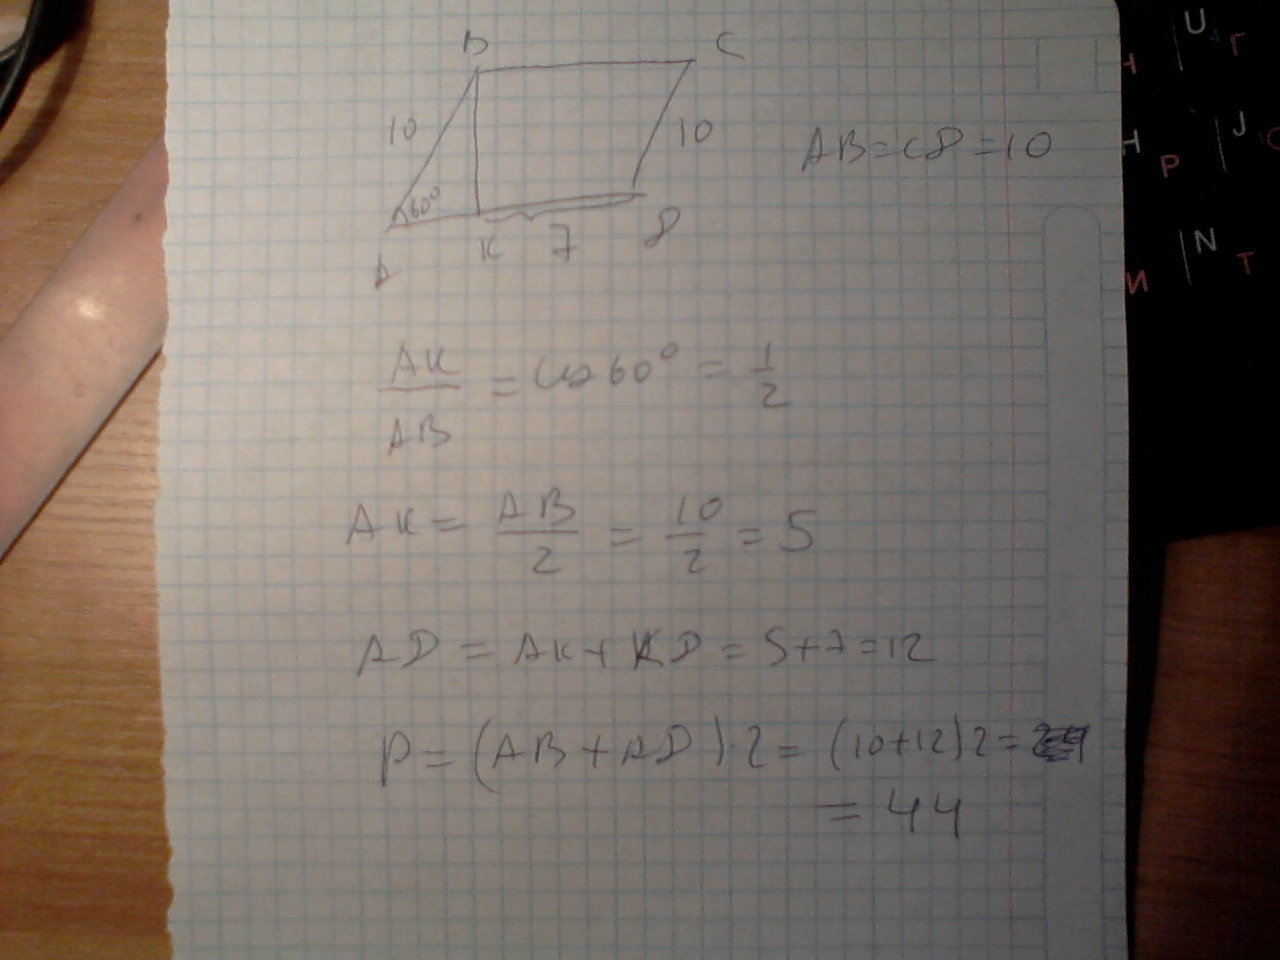 B C
10 10
60°
AB=CD=10
A K 7 D
AK/AB = cos 60° = 1/2
AK = AB/2 = 10/2 = 5
AD = AK + KD = 5+7=12
P = (AB + AD)·2 = (10+12)2 =
= 44
U Г
Н Р J
И N Т